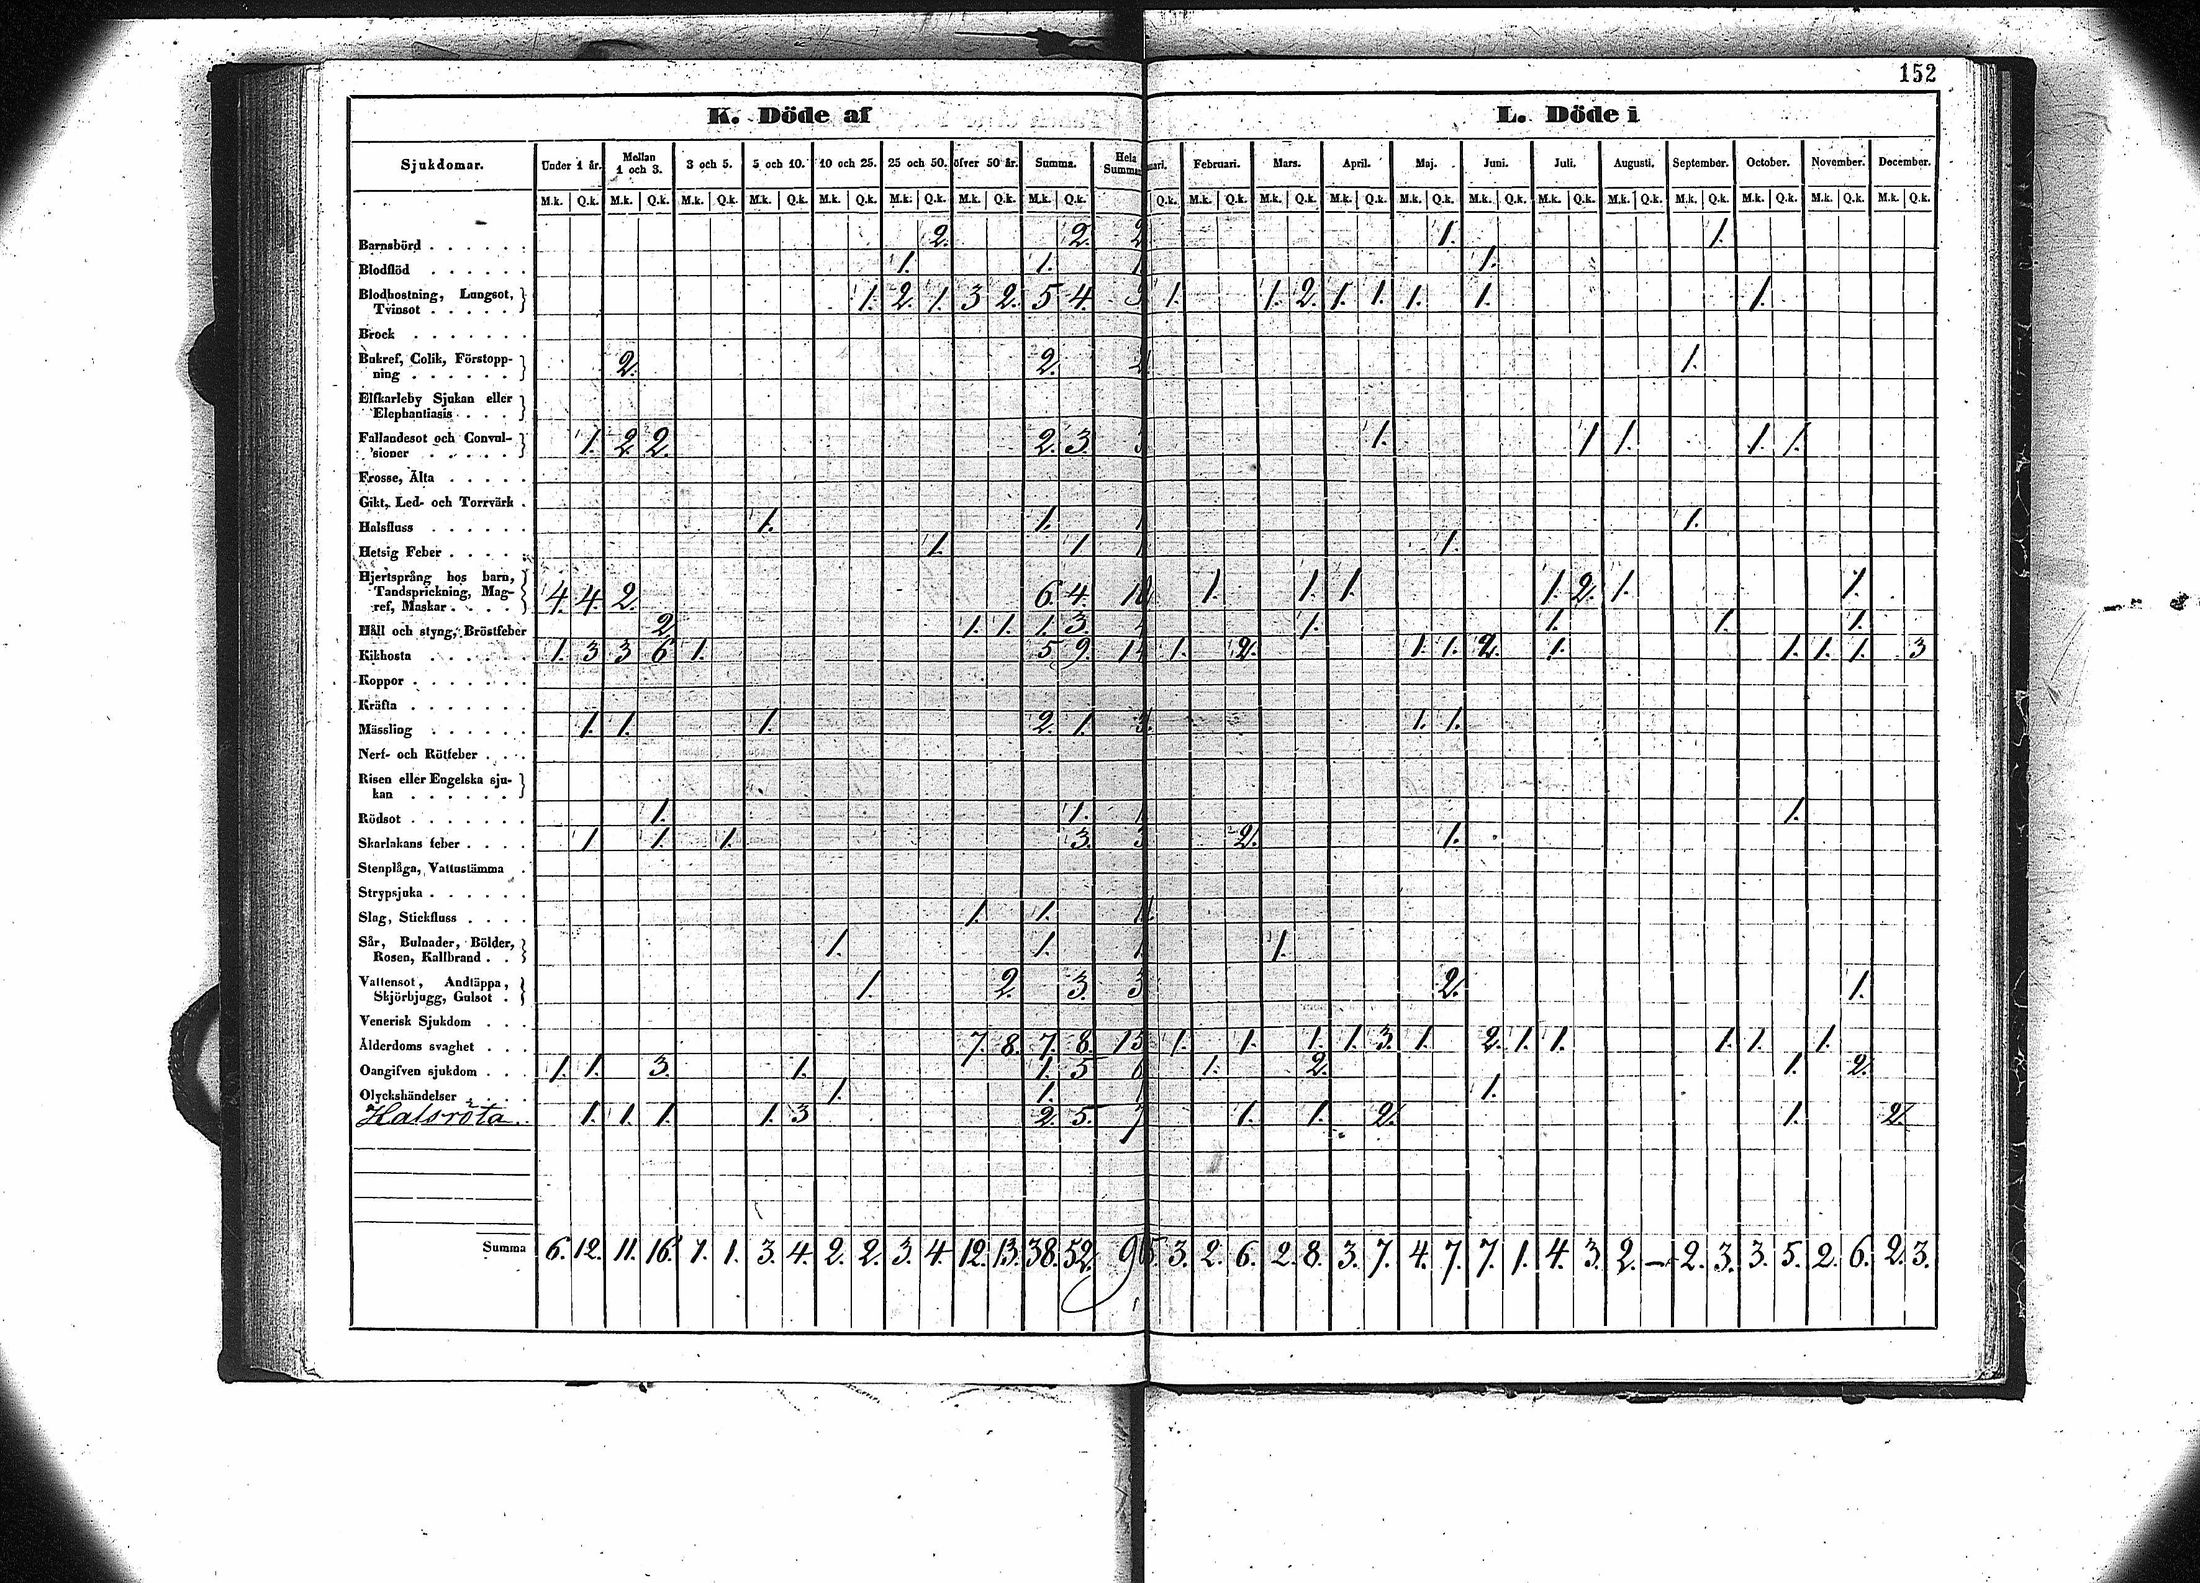 152
K. Döde af L. Döde i
Sjukdomar. Under 1 år. Mellan 1 och 3. 3 och 5. 5 och 10. 10 och 25. 25 och 50. öfver 50 år. Summa. Hela Summan Februari. Mars. April. Maj. Juni. Juli. Augusti. September. October. November. December.
M.k. Q.k. M.k. Q.k. M.k. Q.k. M.k. Q.k. M.k. Q.k. M.k. Q.k. M.k. Q.k. M.k. Q.k. Q.k. M.k. Q.k. M.k. Q.k. M.k. Q.k. M.k. Q.k. M.k. Q.k. M.k. Q.k. M.k. Q.k. M.k. Q.k. M.k. Q.k. M.k. Q.k. M.k. Q.k.
Barnsbörd 2. 2. 2 1. 1.
Blodflöd 1. 1. 1 1.
Blodhostning, Lungsot,
Tvinsot 1. 2. 1. 3 2. 5 4. 1. 1. 2. 1. 1. 1. 1. 1.
Brock
Bukref, Colik, Förstopp-
ning 2. 2. 2 1.
Elfkarleby Sjukan eller
Elephantiasis
Fallandesot och Convul-
sioner 1. 2 2. 2. 3. 1. 1 1. 1. 1.
Frosse, Älta
Gikt, Led- och Torrvärk
Halsfluss 1. 1. 1 1.
Hetsig Feber 1. 1 1 1.
Hjertsprång hos barn,
Tandsprickning, Mag-
ref, Maskar 4. 4. 2. 6. 4. 10 1. 1. 1. 1. 2. 1. 1.
Håll och styng, Bröstfeber 2 1. 1. 1. 3. 1. 1. 1. 1.
Kikhosta 1. 3 3 6 1. 5 9. 14 1. 2. 1. 1. 2. 1. 1. 1. 1. 3
Koppor
Kräfta
Mässling 1. 1. 1. 2. 1. 3. 1. 1.
Nerf- och Rötfeber
Risen eller Engelska sju-
kan
Rödsot 1. 1. 1 1.
Skarlakans feber 1 1. 1. 3. 3 2. 1.
Stenplåga, Vattustämma
Strypsjuka
Slag, Stickfluss 1. 1. 1.
Sår, Bulnader, Bölder,
Rosen, Kallbrand 1. 1. 1 1.
Vattensot, Andtäppa,
Skjörbjugg, Gulsot 1. 2. 3. 3 2. 1.
Venerisk Sjukdom
Ålderdoms svaghet 7. 8. 7. 8. 15 1. 1. 1. 1. 3. 1. 2. 1. 1. 1. 1. 1.
Oangifven sjukdom 1. 1. 3. 1. 1. 5 6 1. 2. 1. 2.
Olyckshändelser 1. 1. 1 1.
Halsröta. 1. 1. 1. 1. 3 2. 5. 7 1. 1. 2. 1. 2.
Summa 6. 12. 11. 16. 1. 1. 3. 4. 2. 2. 3. 4. 12. 13. 38. 52. 3. 2. 6. 2. 8. 3. 7. 4. 7. 7. 1. 4. 3. 2. — 2. 3. 3. 5. 2. 6. 2. 3.